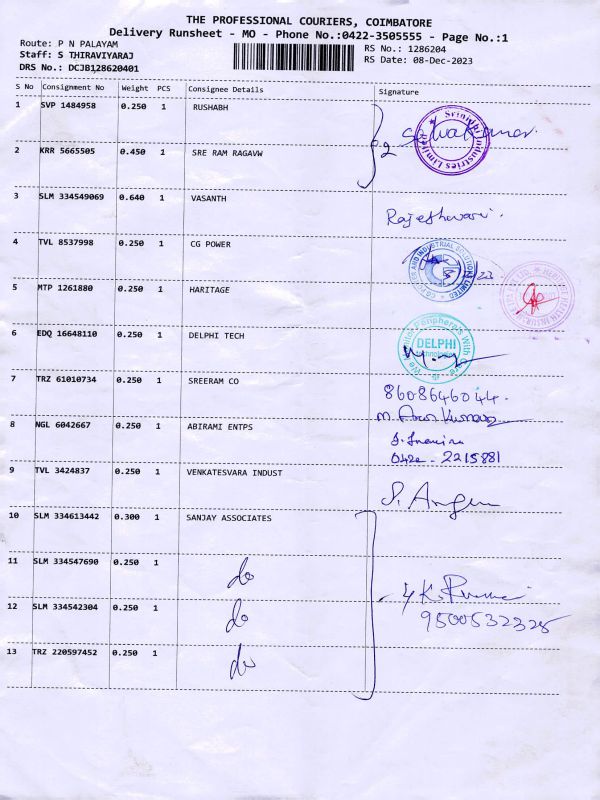 THE PROFESSIONAL COURIERS, COIMBATORE
Delivery Runsheet - MO - Phone No.:0422-3505555 - Page No.:1
Route: P N PALAYAM
RS No.: 1286204
Staff: S THIRAVIYARAJ
RS Date: 08-Dec-2023
DRS No.: DCJB128620401
S No Consignment No Weight PCS Consignee Details Signature
1 SVP 1484958 0.250 1 RUSHABH
2 KRR 5665505 0.450 1 SRE RAM RAGAVW
2
Srinidhi Industries Limited
3 SLM 334549069 0.640 1 VASANTH
Rajeshwari.
4 TVL 8537998 0.250 1 CG POWER
AND INDUSTRIAL SOLUTIONS LIMITED
5 MTP 1261880 0.250 1 HARITAGE
6 EDQ 16648110 0.250 1 DELPHI TECH
We Tailor Peripherals With Care
DELPHI
Technologies
7 TRZ 61010734 0.250 1 SREERAM CO
8608646044.
M. Arun Kumar
8 NGL 6042667 0.250 1 ABIRAMI ENTPS
0422 - 2215881
9 TVL 3424837 0.250 1 VENKATESVARA INDUST
10 SLM 334613442 0.300 1 SANJAY ASSOCIATES
11 SLM 334547690 0.250 1 do
12 SLM 334542304 0.250 1 do
4
9500532325
13 TRZ 220597452 0.250 1 do